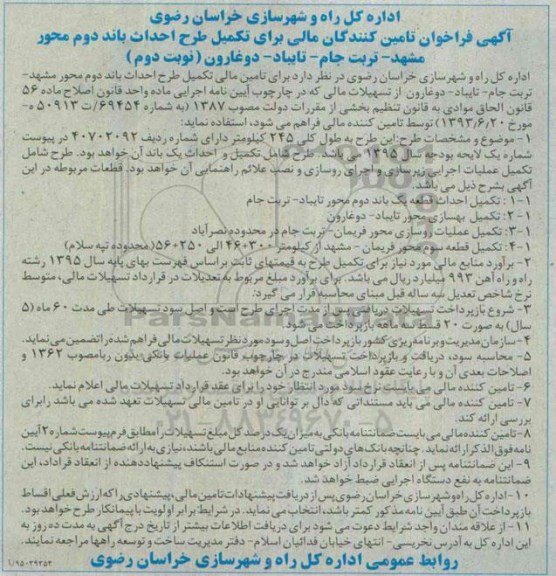 اداره کل راه و شهرسازی خراسان رضوی
آگهی فراخوان تامین کنندگان مالی برای تکمیل طرح احداث باند دوم محور
مشهد- تربت جام- تایباد- دوغارون (نوبت دوم)
اداره کل راه و شهرسازی خراسان رضوی در نظر دارد برای تامین مالی تکمیل طرح احداث باند دوم محور مشهد-
تربت جام- تایباد- دوغارون از تسهیلات مالی که در چارچوب آیین نامه اجرایی ماده واحد قانون اصلاح ماده ۵۶
قانون الحاق موادی به قانون تنظیم بخشی از مقررات دولت مصوب ۱۳۸۷ (به شماره ۶۹۴۵۴/ت ۵۰۹۱۳ه-
مورخ ۱۳۹۳,۶,۲۰) توسط تامین کننده مالی فراهم می شود، استفاده نماید:
۱- موضوع و مشخصات طرح: این طرح به طول کلی ۲۴۵ کیلومتر دارای شماره ردیف ۴۰۷۰۲۰۹۲ در پیوست
شماره یک لایحه بودجه سال ۱۳۹۵ می باشد. طرح شامل تکمیل و احداث یک باند آن خواهد بود. طرح شامل
تکمیل عملیات اجرایی زیرسازی و اجرای روسازی و نصب علائم راهنمایی آن خواهد بود. قطعات مربوطه در این
آگهی بشرح ذیل می باشد.
۱-۱ : تکمیل احداث قطعه یک باند دوم محور تایباد- تربت جام
۲-۱ : تکمیل بهسازی محور تایباد- دوغارون
۳-۱ : تکمیل عملیات روسازی محور فریمان- تربت جام در محدوده نصرآباد
۴-۱ : تکمیل قطعه سوم محور فریمان - مشهد از کیلومتر ۳۰۰+۴۶ الی ۲۵۰+۵۶(محدوده تپه سلام)
۲- برآورد منابع مالی مورد نیاز برای تکمیل طرح به قیمتهای ثابت بر اساس فهرست بهای پایه سال ۱۳۹۵ رشته
راه و راه آهن ۹۹۳ میلیارد ریال می باشد. برای برآورد مبلغ مربوط به تعدیلات در قرارداد تسهیلات مالی، متوسط
نرخ شاخص تعدیل سه ساله قبل مبنای محاسبه قرار می گیرد.
۳- شروع بازپرداخت تسهیلات دریافتی پس از مدت اجرای طرح است و اصل سود تسهیلات طی مدت ۶۰ ماه (۵
سال) به صورت ۲۰ قسط سه ماهه بازپرداخت می شود.
۴- سازمان مدیریت و برنامه ریزی کشور بازپرداخت اصل و سود مورد نظر تسهیلات مالی فراهم شده را تضمین می نماید.
۵- محاسبه سود، دریافت و بازپرداخت تسهیلات در چارچوب قانون عملیات بانکی بدون ربا مصوب ۱۳۶۲ و
اصلاحات بعدی آن و با رعایت عقود اسلامی مندرج در آن خواهد بود.
۶- تامین کننده مالی می بایست نرخ سود مورد انتظار خود را برای عقد قرارداد تسهیلات مالی اعلام نماید.
۷- تامین کننده مالی می باید مستنداتی که دال بر توانایی او در تامین مالی تسهیلات تعهد شده می باشد را برای
بررسی ارائه کند.
۸- تامین کننده مالی می بایست ضمانتنامه بانکی به میزان یک درصد کل مبلغ تسهیلات را مطابق فرم پیوست شماره ۲ آیین
نامه فوق الذکر ارائه نماید. چنانچه بانک های دولتی تامین کننده منابع مالی باشند، نیازی به ارائه ضمانتنامه بانکی نیست.
۹- این ضمانتنامه پس از انعقاد قرارداد آزاد خواهد شد و در صورت استنکاف پیشنهاددهنده از انعقاد قراداد، این
ضمانتنامه به نفع دستگاه اجرایی ضبط خواهد شد.
۱۰- اداره کل راه و شهرسازی خراسان رضوی پس از دریافت پیشنهادات تامین مالی، پیشنهادی را که ارزش فعلی اقساط
بازپرداخت آن طبق آیین نامه مذکور کمتر باشد، انتخاب می نماید. در شرایط برابر اولویت با پیمانکار طرح خواهد بود.
۱۱- از علاقه مندان واجد شرایط دعوت می شود برای دریافت اطلاعات بیشتر از تاریخ درج آگهی به مدت ده روز به
این اداره کل به آدرس نخریسی- انتهای خیابان فدائیان اسلام- دفتر مدیریت ساخت و توسعه راهها مراجعه نمایند.
روابط عمومی اداره کل راه و شهرسازی خراسان رضوی
۹۵۰۲۹۲۵۲/ا
ParsNamadData
۰۲۱-۸۸۳۴۹۶۷۰-۵